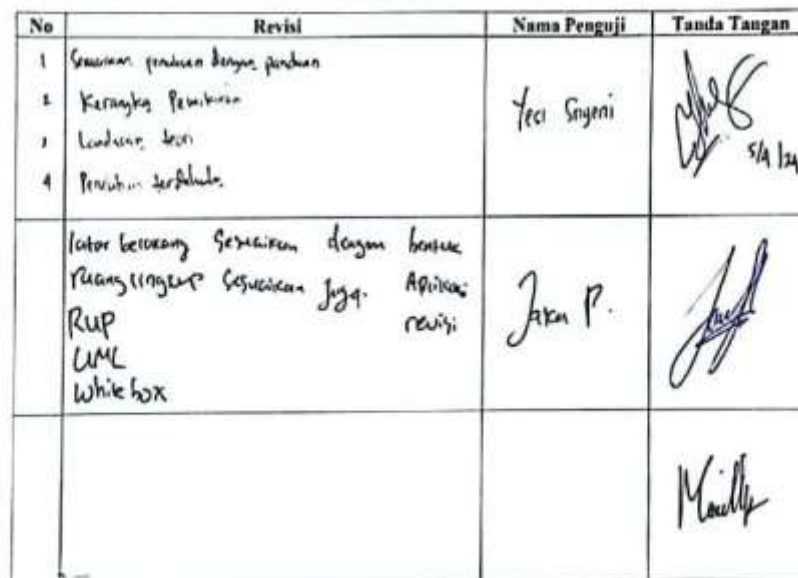 No Revisi Nama Penguji Tanda Tangan
1 Sesuaikan penulisan dengan panduan
2 Kerangka Pemikiran
3 Landasan teori
4 Penelitian terdahulu
Yesi Sriyeni
5/4/24
latar belakang Sesuaikan dengan bentuk
ruang lingkup Sesuaikan juga. Aplikasi
RUP revisi
UML
White box
Jaka P.